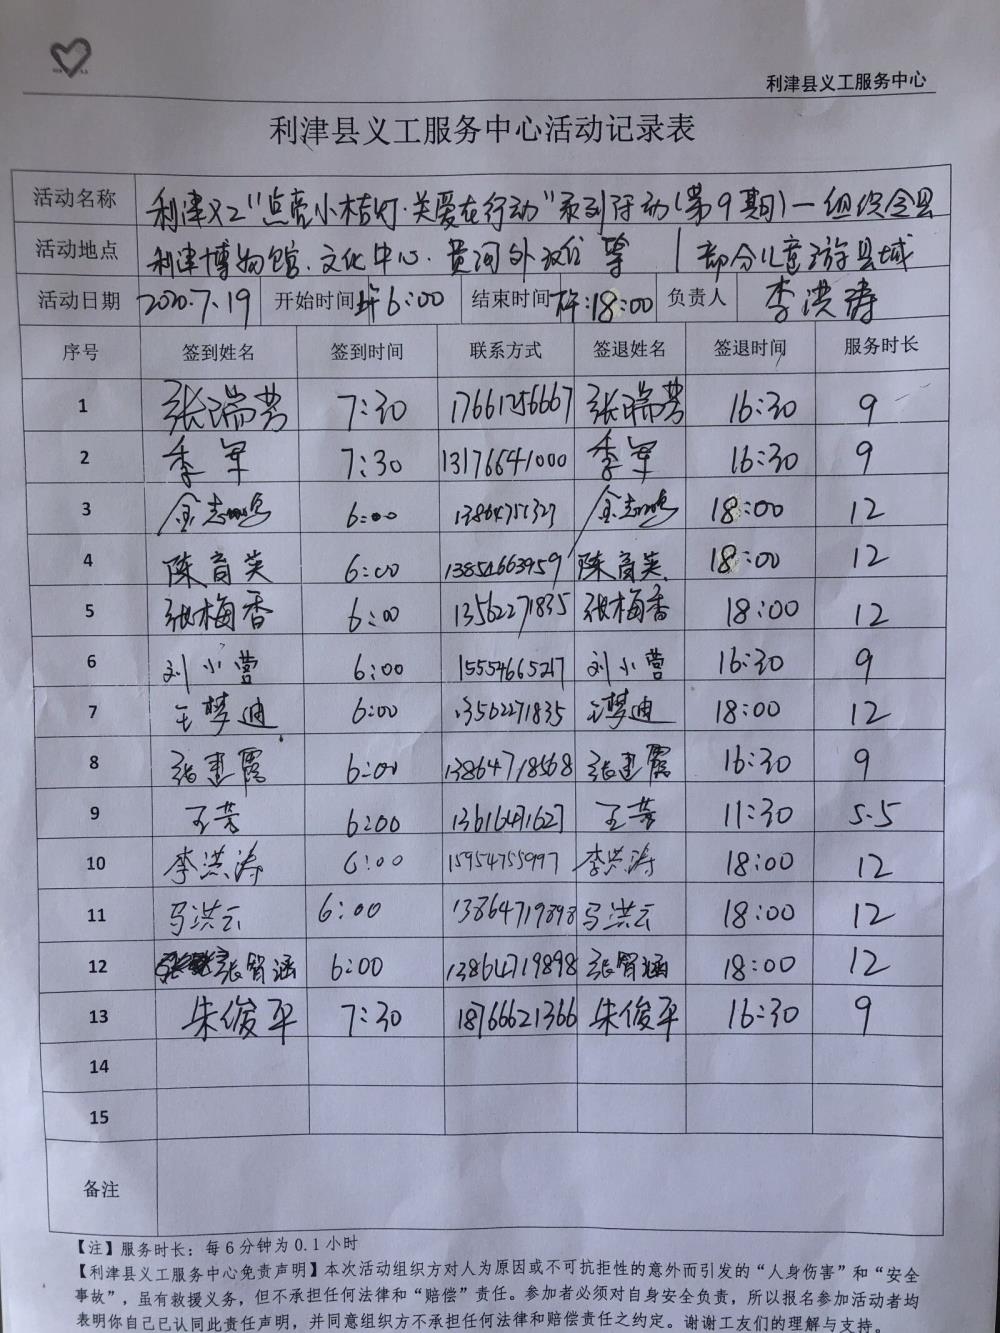 利津县义工服务中心
利津县义工服务中心活动记录表
活动名称 利津义工"点亮小桔灯·关爱在行动"系列行动(第9期)—组织全县
活动地点 利津博物馆、文化中心、黄河外滩 等 部分儿童游县域
活动日期 2020.7.19 开始时间 上午6:00 结束时间 下午:18:00 负责人 李洪涛
序号 签到姓名 签到时间 联系方式 签退姓名 签退时间 服务时长
1 张瑞芳 7:30 17661256667 张瑞芳 16:30 9
2 季军 7:30 13176641000 季军 16:30 9
3 金志鸣 6:00 13864751327 金志鸣 18:00 12
4 陈育英 6:00 13854663959 陈育英 18:00 12
5 张梅香 6:00 13562271835 张梅香 18:00 12
6 刘小营 6:00 15554665217 刘小营 16:30 9
7 王梦迪 6:00 13562271835 王梦迪 18:00 12
8 张建霞 6:00 13864718568 张建霞 16:30 9
9 王芳 6:00 13616471627 王芳 11:30 5.5
10 李洪涛 6:00 15954755997 李洪涛 18:00 12
11 马洪云 6:00 13864719898 马洪云 18:00 12
12 张智涵 6:00 13864719898 张智涵 18:00 12
13 朱俊平 7:30 18766621366 朱俊平 16:30 9
14
15
备注
【注】服务时长：每6分钟为0.1小时
【利津县义工服务中心免责声明】本次活动组织方对人为原因或不可抗拒性的意外而引发的“人身伤害”和“安全
事故”，虽有救援义务，但不承担任何法律和“赔偿”责任。参加者必须对自身安全负责，所以报名参加活动者均
表明你自己已认同此责任声明，并同意组织方不承担任何法律和赔偿责任之约定。谢谢工友们的理解与支持。